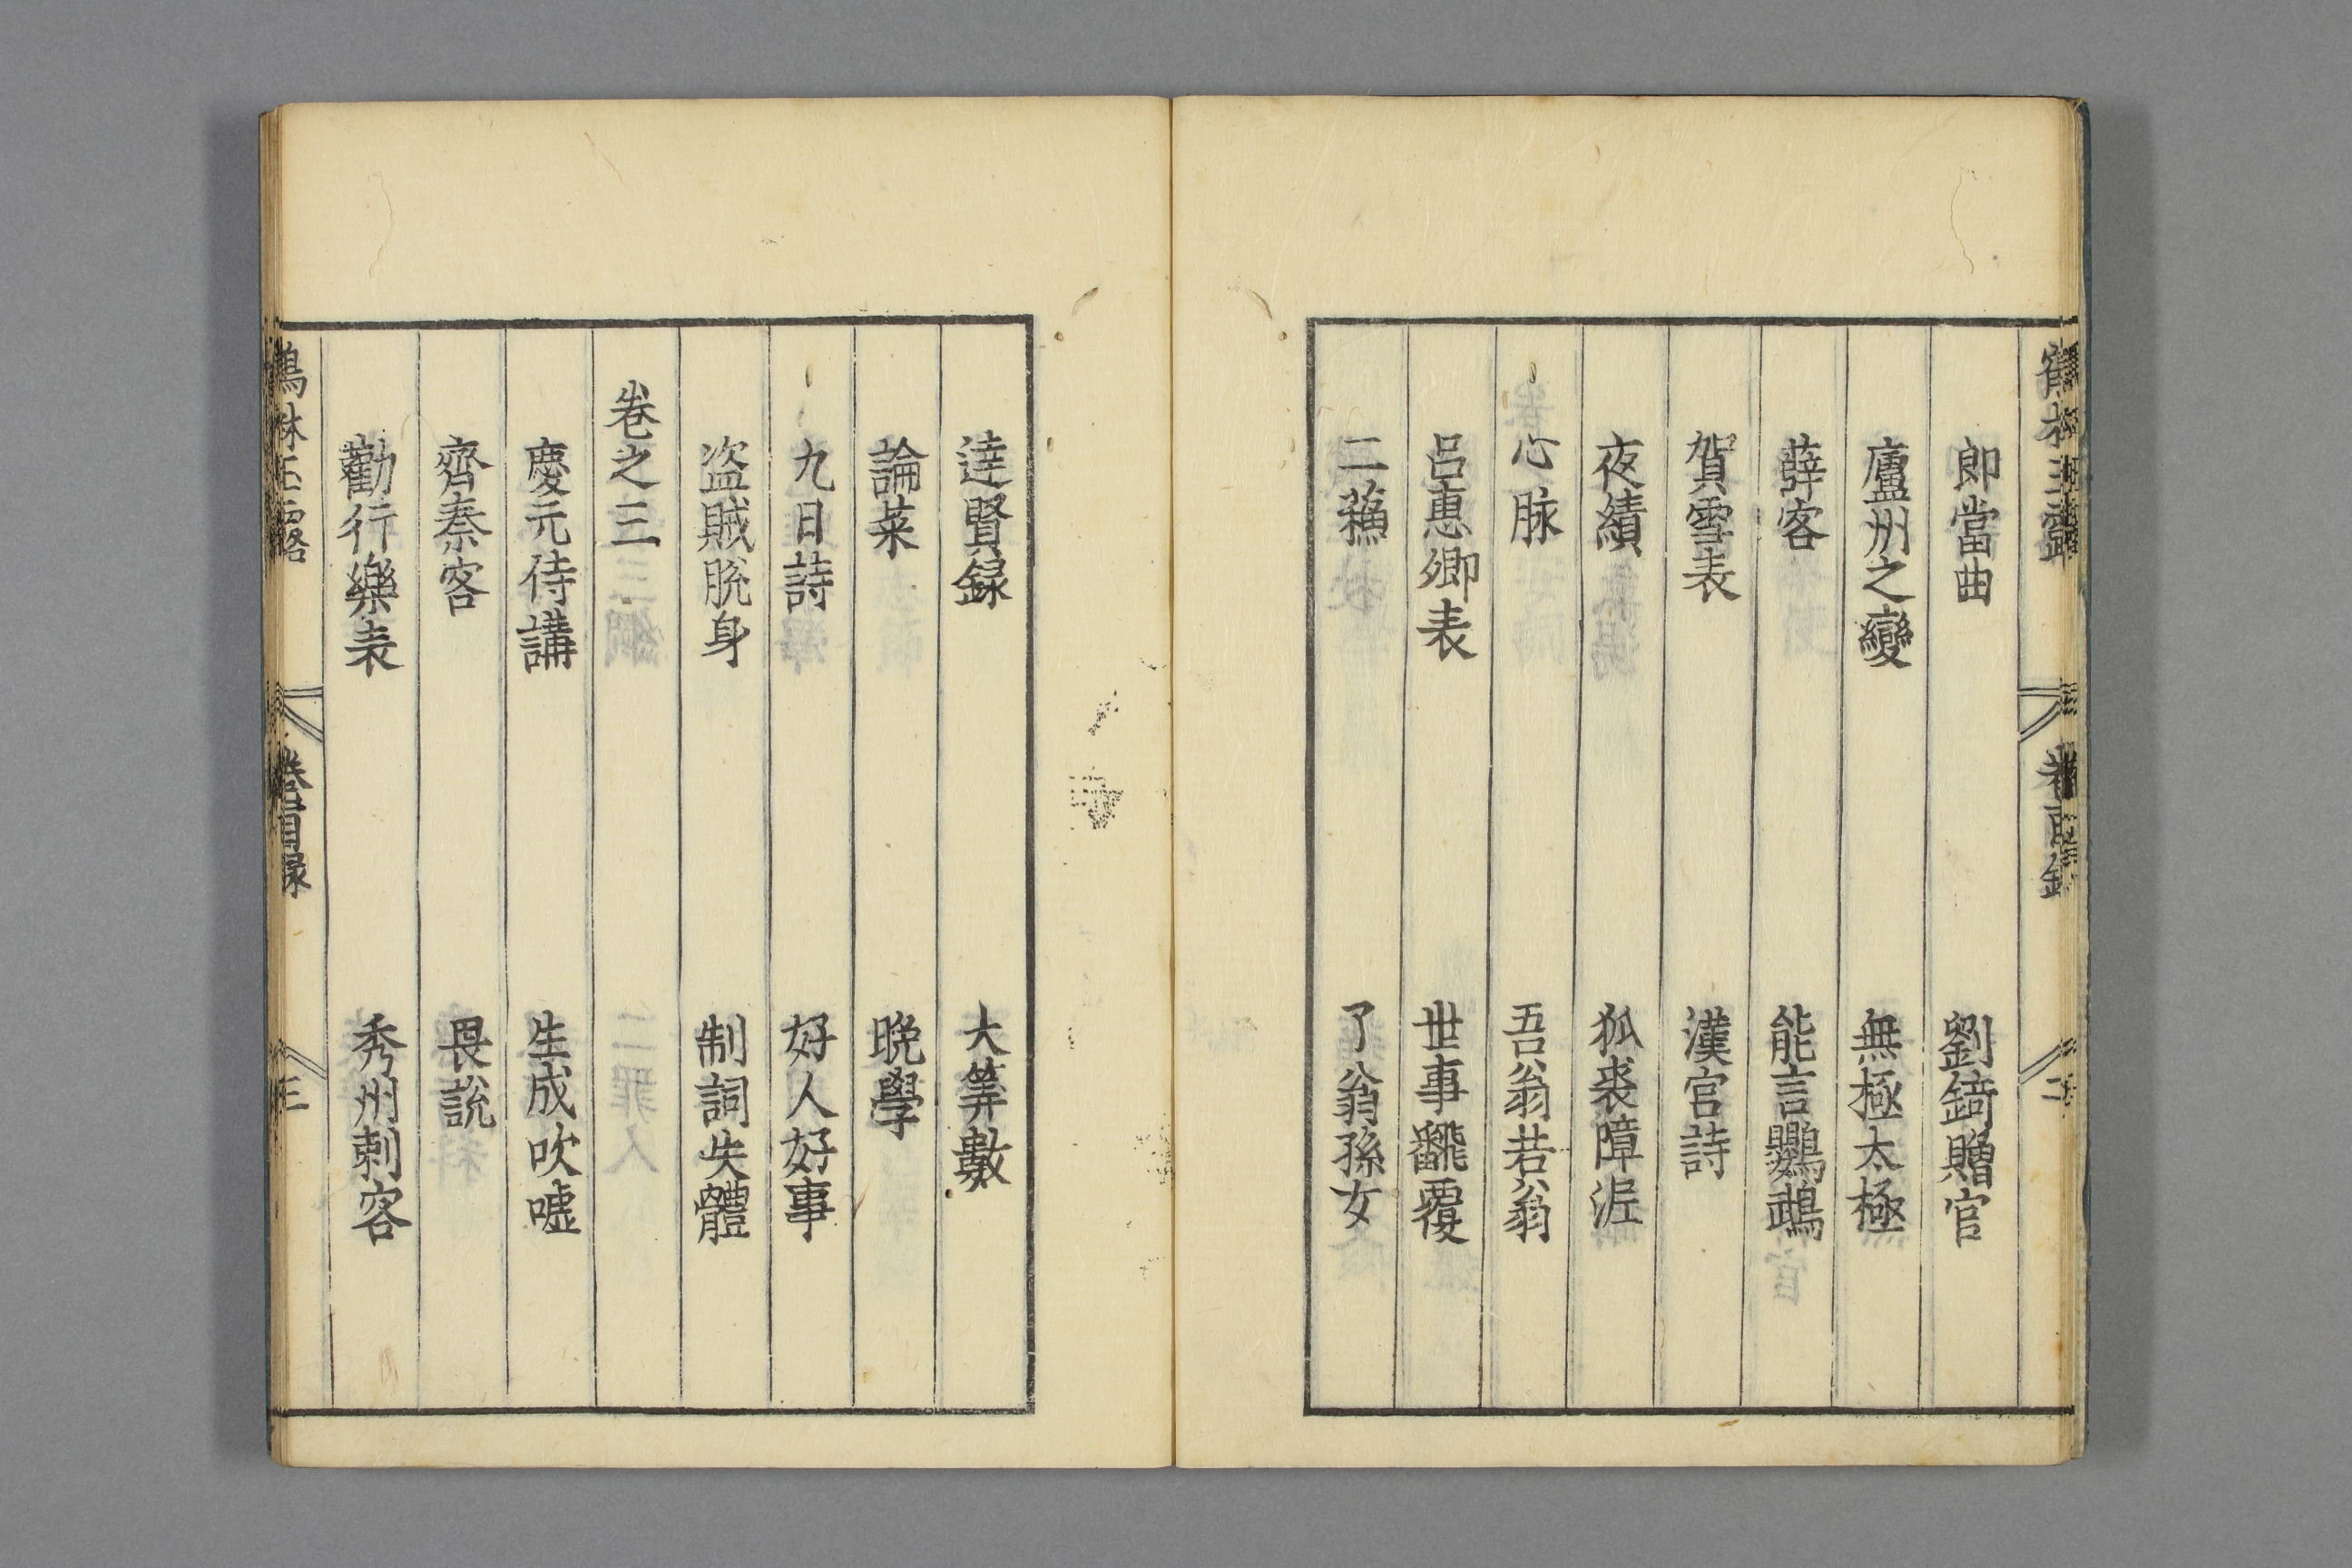 郎當曲 劉錡贈官
廬州之變 無極太極
薛客 能言鸚鵡
賀雪表 漢官詩
夜績 狐裘障泥
心脉 吾翁若翁
呂惠卿表 世事翻覆
二蘓 了翁孫女
達賢録 大筭數
論菜 晩學
九日詩 好人好事
盗賊脱身 制詞失體
卷之三
慶元侍講 生成吹噓
齊秦客 畏說
勸行樂表 秀州刺客
鶴林玉露 卷目録 三